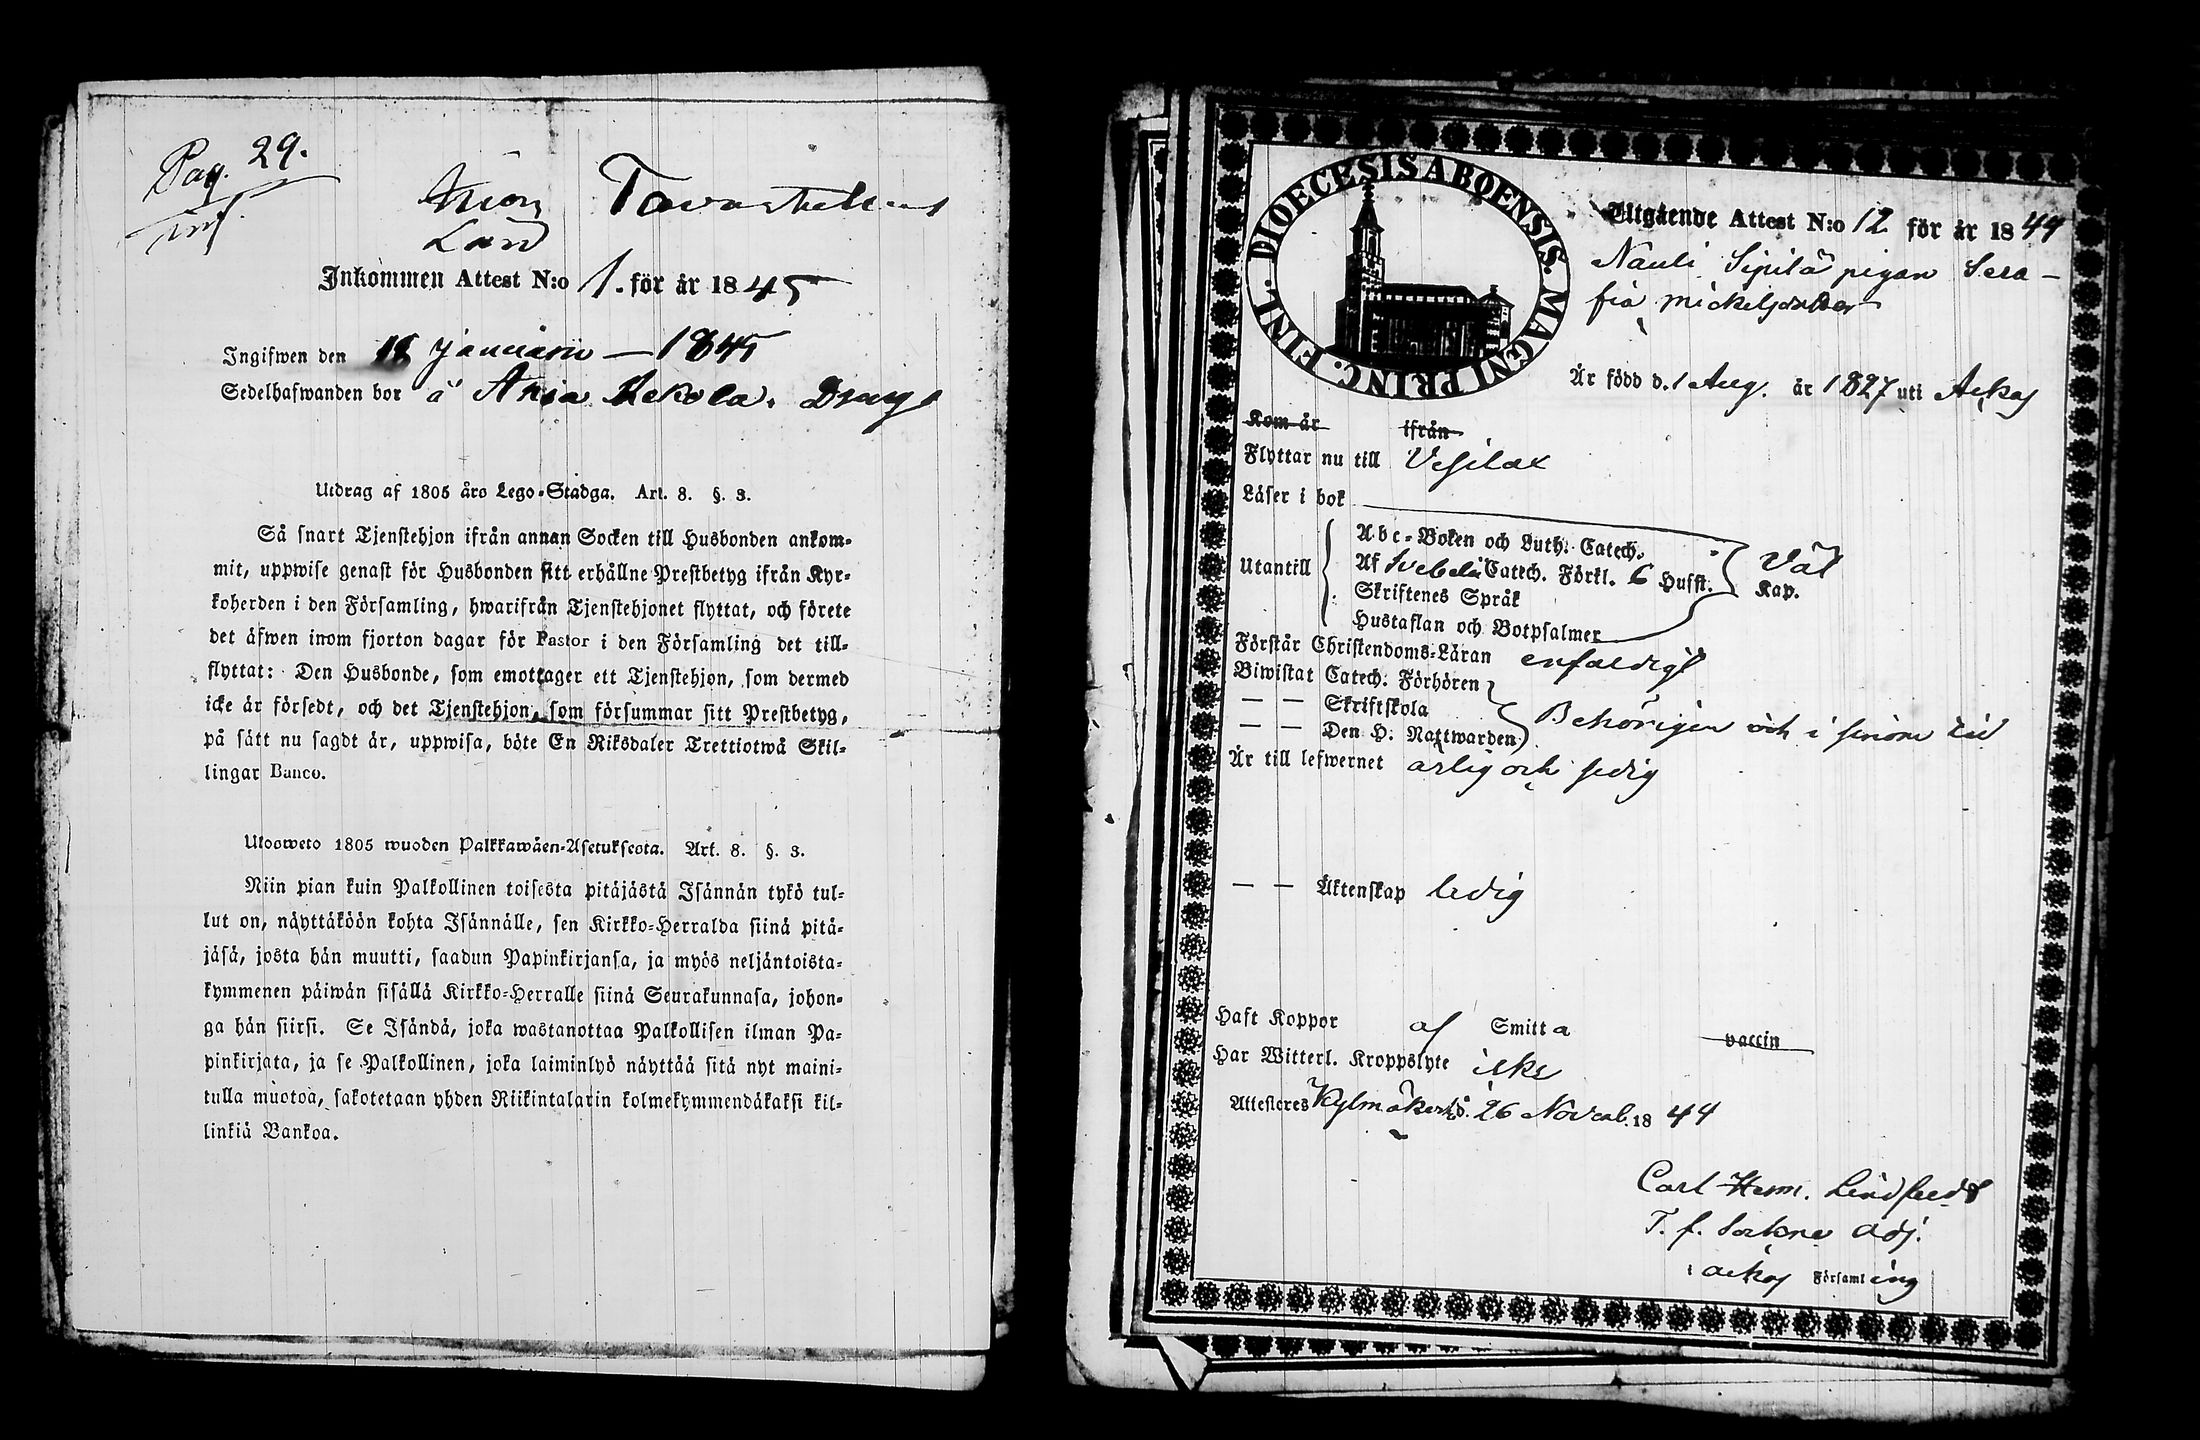 Pag. 29.
inf.
Tavastehus
Län
Inkommen Attest N:o 1. för år 1845
Ingifwen den 18 januarii — 1845
Sedelhafwanden bor å Ania Uckola. Dräng
Utdrag af 1805 års Lego-Stadga. Art. 8. §. 3.
Så snart Tjenstehjon ifrån annan Socken till Husbonden ankom-
mit, uppwise genast för Husbonden sitt erhållne Prestbetyg ifrån Kyr-
koherden i den Församling, hwarifrån Tjenstehjonet flyttat, och förete
det äfwen inom fjorton dagar för Pastor i den Församling det till-
flyttat: Den Husbonde, som emottager ett Tjenstehjon, som dermed
icke är försedt, och det Tjenstehjon, som försummar sitt Prestbetyg,
på sätt nu sagdt är, uppwisa, böte En Riksdaler Trettiotwå Skil-
lingar Banco.
Ulosweto 1805 wuoden Palkkawäen-Asetuksesta. Art. 8. §. 3.
Niin pian kuin Palkollinen toisesta pitäjästä Isännän tykö tul-
lut on, näyttäköön kohta Isännälle, sen Kirkko-Herralda siinä pitä-
jäsä, josta hän muutti, saadun Papinkirjansa, ja myös neljäntoista-
kymmenen päiwän sisällä Kirkko-Herralle siinä Seurakunnasa, johon-
ga hän siirsi. Se Isändä, joka wastanottaa Palkollisen ilman Pa-
pinkirjata, ja se Palkollinen, joka laiminlyö näyttää sitä nyt maini-
tulla muotoa, sakotetaan yhden Riikintalarin kolmekymmendäkaksi kil-
linkiä Bankoa.
DIOECESIS ABOENSIS. MAGNI PRINC. FINL.
Utgående Attest N:o 12 för år 1844
Nauli Sipilä pigan Sera-
fia Mickelsdotter
Är född d. 1 Aug. år 1827 uti Ackas
Kom år ifrån
Flyttar nu till Vesilax
Läser i bok
Abc-Boken och Luth. Catech.
Utantill Af Svebelii Catech. Förkl. 6 Hufst. Väl Kap.
Skriftenes Språk
Hustaflan och Botpsalmer
Förstår Christendoms-Läran enfaldigt
Biwistat Catech. Förhören
— — Skriftskola Behörigen och i sinom tid
— — Den H. Nattwarden
Är till lefwernet ärlig och sedig
— — Äktenskap ledig
Haft Koppor af Smitta vaccin
Har Witterl. Kroppslyte icke
Attesteres Kylmäkoski d. 26 Novemb. 1844
Carl Herm. Lindstedt
T. f. Sockne Adj.
i Ackas Församling